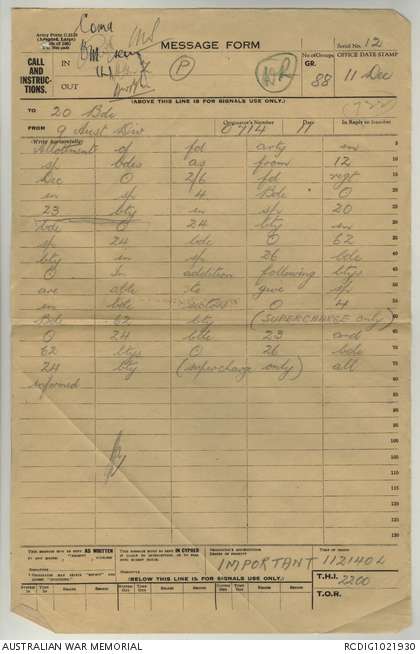 MESSAGE FORM
Serial No. 12
CALL
AND
INSTRUC-
TIONS.
IN
OUT
Coma
P
No. of Groups
GR.
88
OFFICE DATE STAMP
11 Dec
(ABOVE THIS LINE IS FOR SIGNALS USE ONLY.)
TO 20 Bde
FROM 9 Aust Div
Originator's Number
O 714
11
In Reply to Number
(Write horizontally)
Allotment of fd arty in
sp bdes as from 12
Dec O 2/6 fd regt
in sp 4 Bde O
23 bty in sp 20
bde O 24 bty in
sp 24 bde O 62
bty in sp 26 bde
O In addition following btys
are able to give sp
in bde sectors O 4
Bde 62 bty (SUPERCHARGE only)
O 24 bde 23 and
62 btys O 26 bde
24 bty (supercharge only) all
informed
THIS MESSAGE MAY BE SENT AS WRITTEN
THIS MESSAGE MUST BE SENT IN CYPHER
IMPORTANT
112140L
(BELOW THIS LINE IS FOR SIGNALS USE ONLY.)
T.H.I. 2200
T.O.R.
AUSTRALIAN WAR MEMORIAL
RCDIG1021930